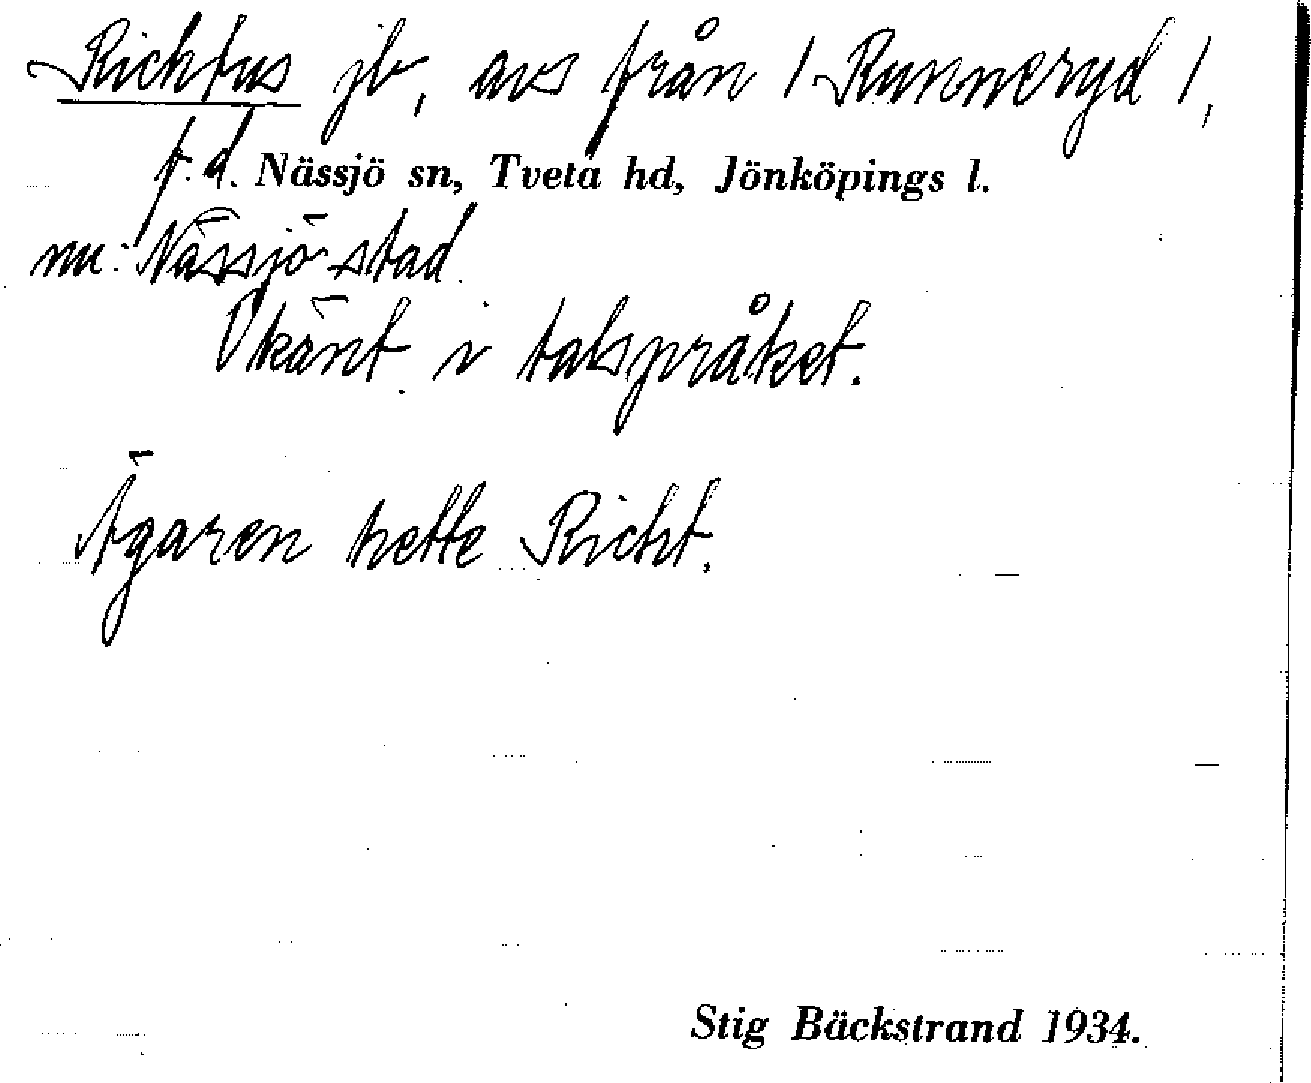 Richtus jb, avs från 1 Runneryd 1,
f.d. Nässjö sn, Tveta hd, Jönköpings l.
nu: Nässjö stad.
Okänt i talspråket.
Ägaren hette Richt.
Stig Bäckstrand 1934.